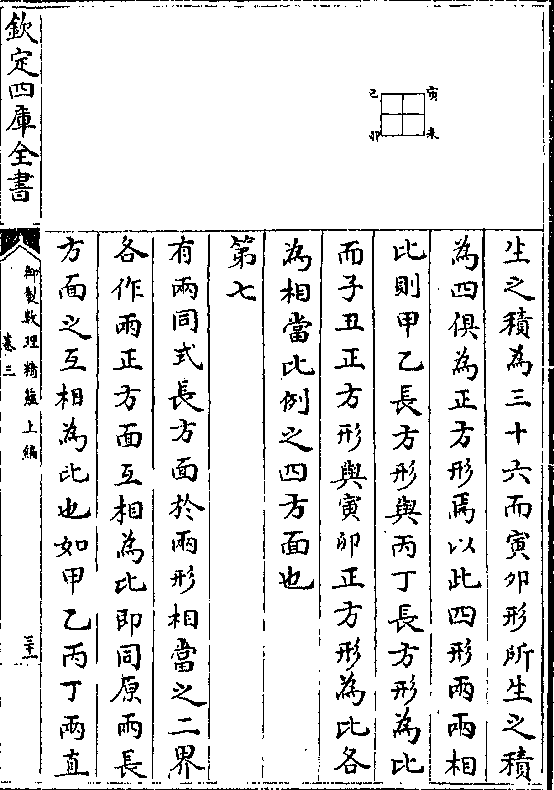 寅
未
巳
卯
生之積為三十六而寅卯形所生之積
為四俱為正方形焉以此四形兩兩相
比則甲乙長方形與丙丁長方形為比
而子丑正方形與寅卯正方形為比各
為相當比例之四方面也
第七
有兩同式長方面於兩形相當之二界
各作兩正方面互相為比即同原兩長
方面之互相為比也如甲乙丙丁兩直
欽定四庫全書
御製數理精蘊上編
卷三